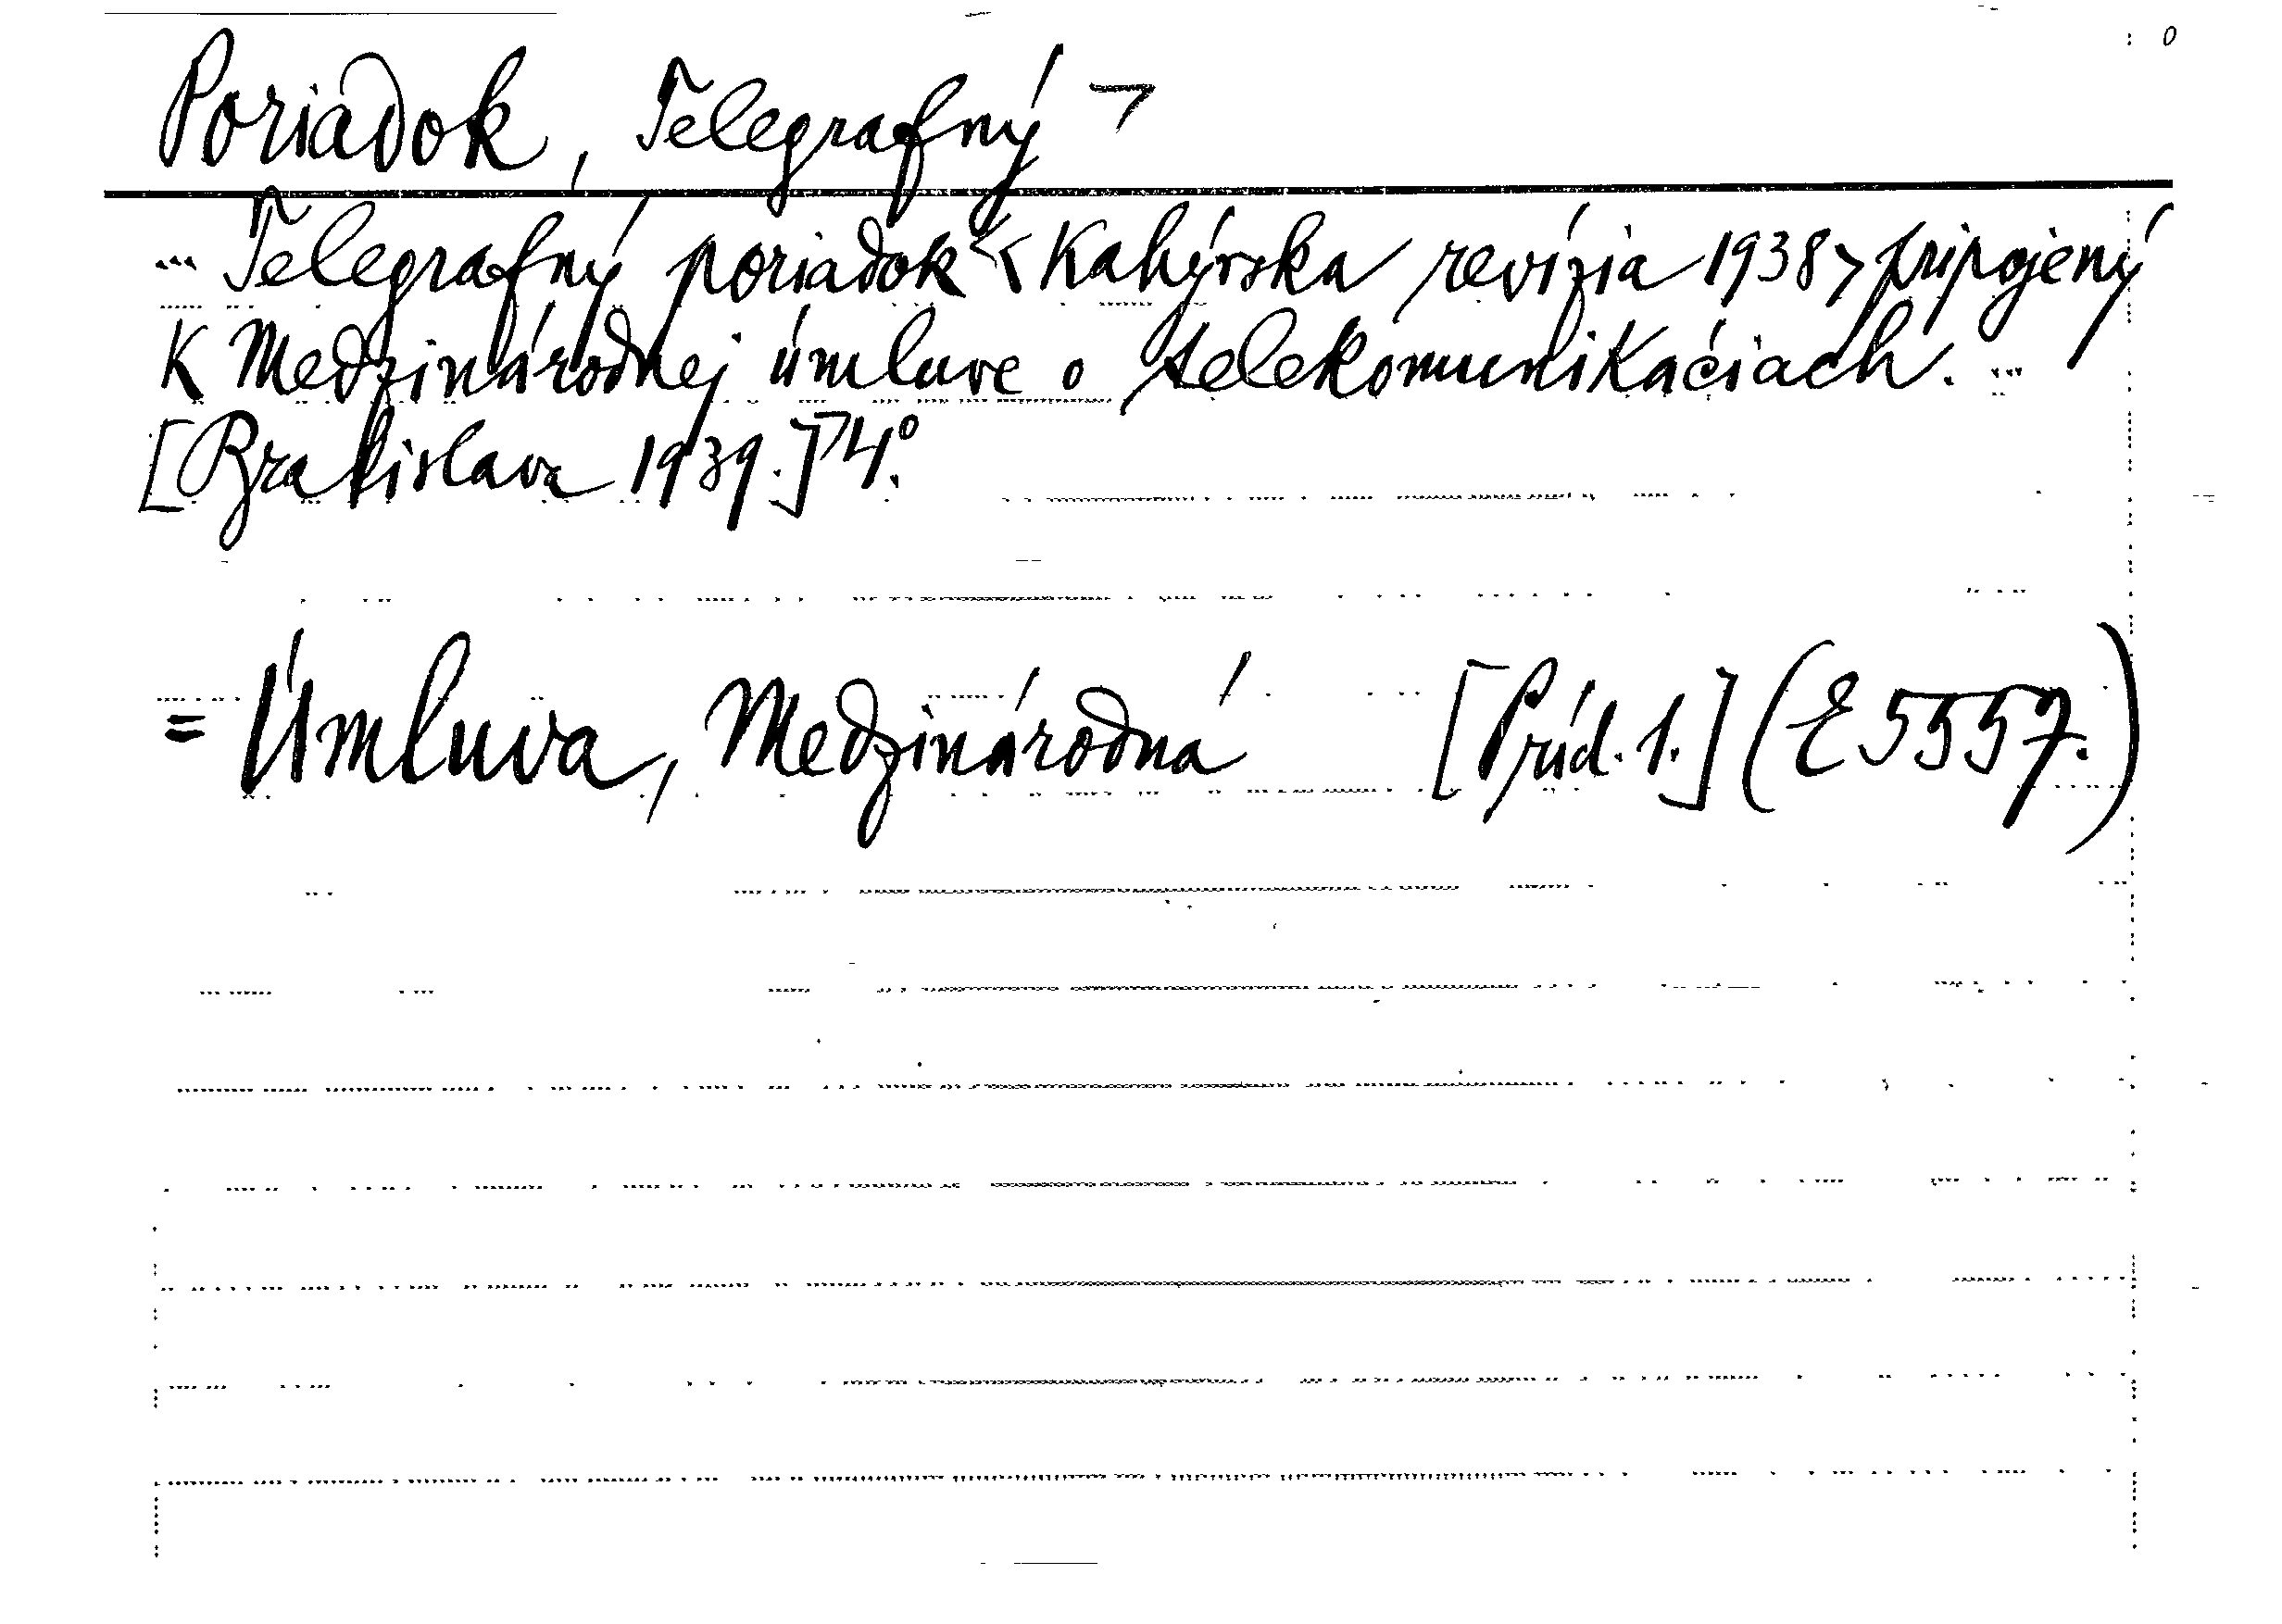 Poriadok, Telegrafný ¬
... Telegrafný poriadok < Kahýrska revízia 1938 > pripojený
K Medzinárodnej úmluve o telekomunikáciach. ...
[Bratislava 1939.] 4°.
= Úmluva, Medzinárodná [Príd. 1.] (E 5557.)